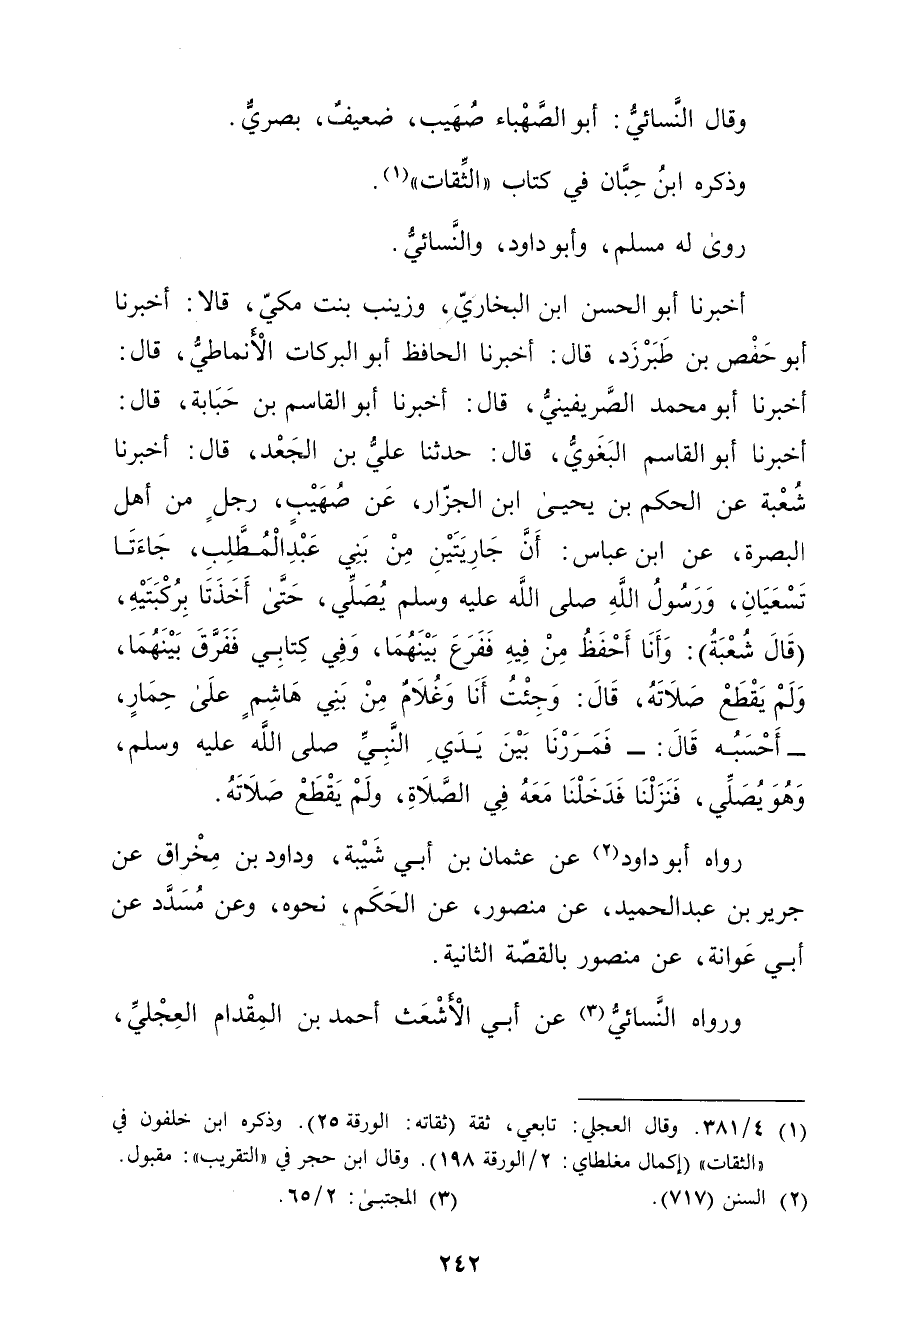 وقال النَّسائيُّ: أبو الصَّهْباء صُهَيب، ضعيفٌ، بصريٌّ.
وذكره ابنُ حِبَّان في كتاب «الثِّقات»(١).
روىٰ له مسلم، وأبو داود، والنَّسائيُّ.
أخبرنا أبو الحسن ابن البخاريّ، وزينب بنت مكيّ، قالا: أخبرنا
أبو حَفْص بن طَبَرْزَد، قال: أخبرنا الحافظ أبو البركات الْأَنماطيُّ، قال:
أخبرنا أبو محمد الصَّريفينيُّ، قال: أخبرنا أبو القاسم بن حَبَابة، قال:
أخبرنا أبو القاسم البَغَويُّ، قال: حدثنا عليُّ بن الجَعْد، قال: أخبرنا
شُعْبة عن الحكم بن يحيىٰ ابن الجزّار، عَن صُهَيْبٍ، رجلٍ من أهل
البصرة، عن ابن عباس: أَنَّ جَارِيَتَيْنِ مِنْ بَنِي عَبْدِالْمُطَّلِبِ، جَاءَتَا
تَسْعَيَانِ، وَرَسُولُ اللَّهِ صلى اللَّه عليه وسلم يُصَلِّي، حَتَّىٰ أَخَذَتَا بِرُكْبَتَيْهِ،
(قَالَ شُعْبَةُ): وَأَنَا أَحْفَظُ مِنْ فِيهِ فَفَرَعَ بَيْنَهُمَا، وَفِي كِتَابِي فَفَرَّقَ بَيْنَهُمَا،
وَلَمْ يَقْطَعْ صَلَاتَهُ، قَالَ: وَجِئْتُ أَنَا وَغُلَامٌ مِنْ بَنِي هَاشِمٍ عَلَىٰ حِمَارٍ،
ـ أَحْسَبُه قَالَ: ـ فَمَرَرْنَا بَيْنَ يَدَيِ النَّبِيِّ صلى اللَّه عليه وسلم،
وَهُوَ يُصَلِّي، فَنَزَلْنَا فَدَخَلْنَا مَعَهُ فِي الصَّلَاةِ، ولَمْ يَقْطَعْ صَلَاتَهُ.
رواه أبو داود(٢) عن عثمان بن أبي شَيْبة، وداود بن مِخْراق عن
جرير بن عبدالحميد، عن منصور، عن الحَكَم، نحوه، وعن مُسَدَّد عن
أبي عَوانة، عن منصور بالقصّة الثانية.
ورواه النَّسائيُّ(٣) عن أبي الْأَشْعَث أحمد بن المِقْدام العِجْليِّ،
(١) ٣٨١/٤. وقال العجلي: تابعي، ثقة (ثقاته: الورقة ٢٥). وذكره ابن خلفون في
«الثقات» (إكمال مغلطاي: ٢/الورقة ١٩٨). وقال ابن حجر في «التقريب»: مقبول.
(٢) السنن (٧١٧). (٣) المجتبىٰ: ٦٥/٢.
٢٤٢